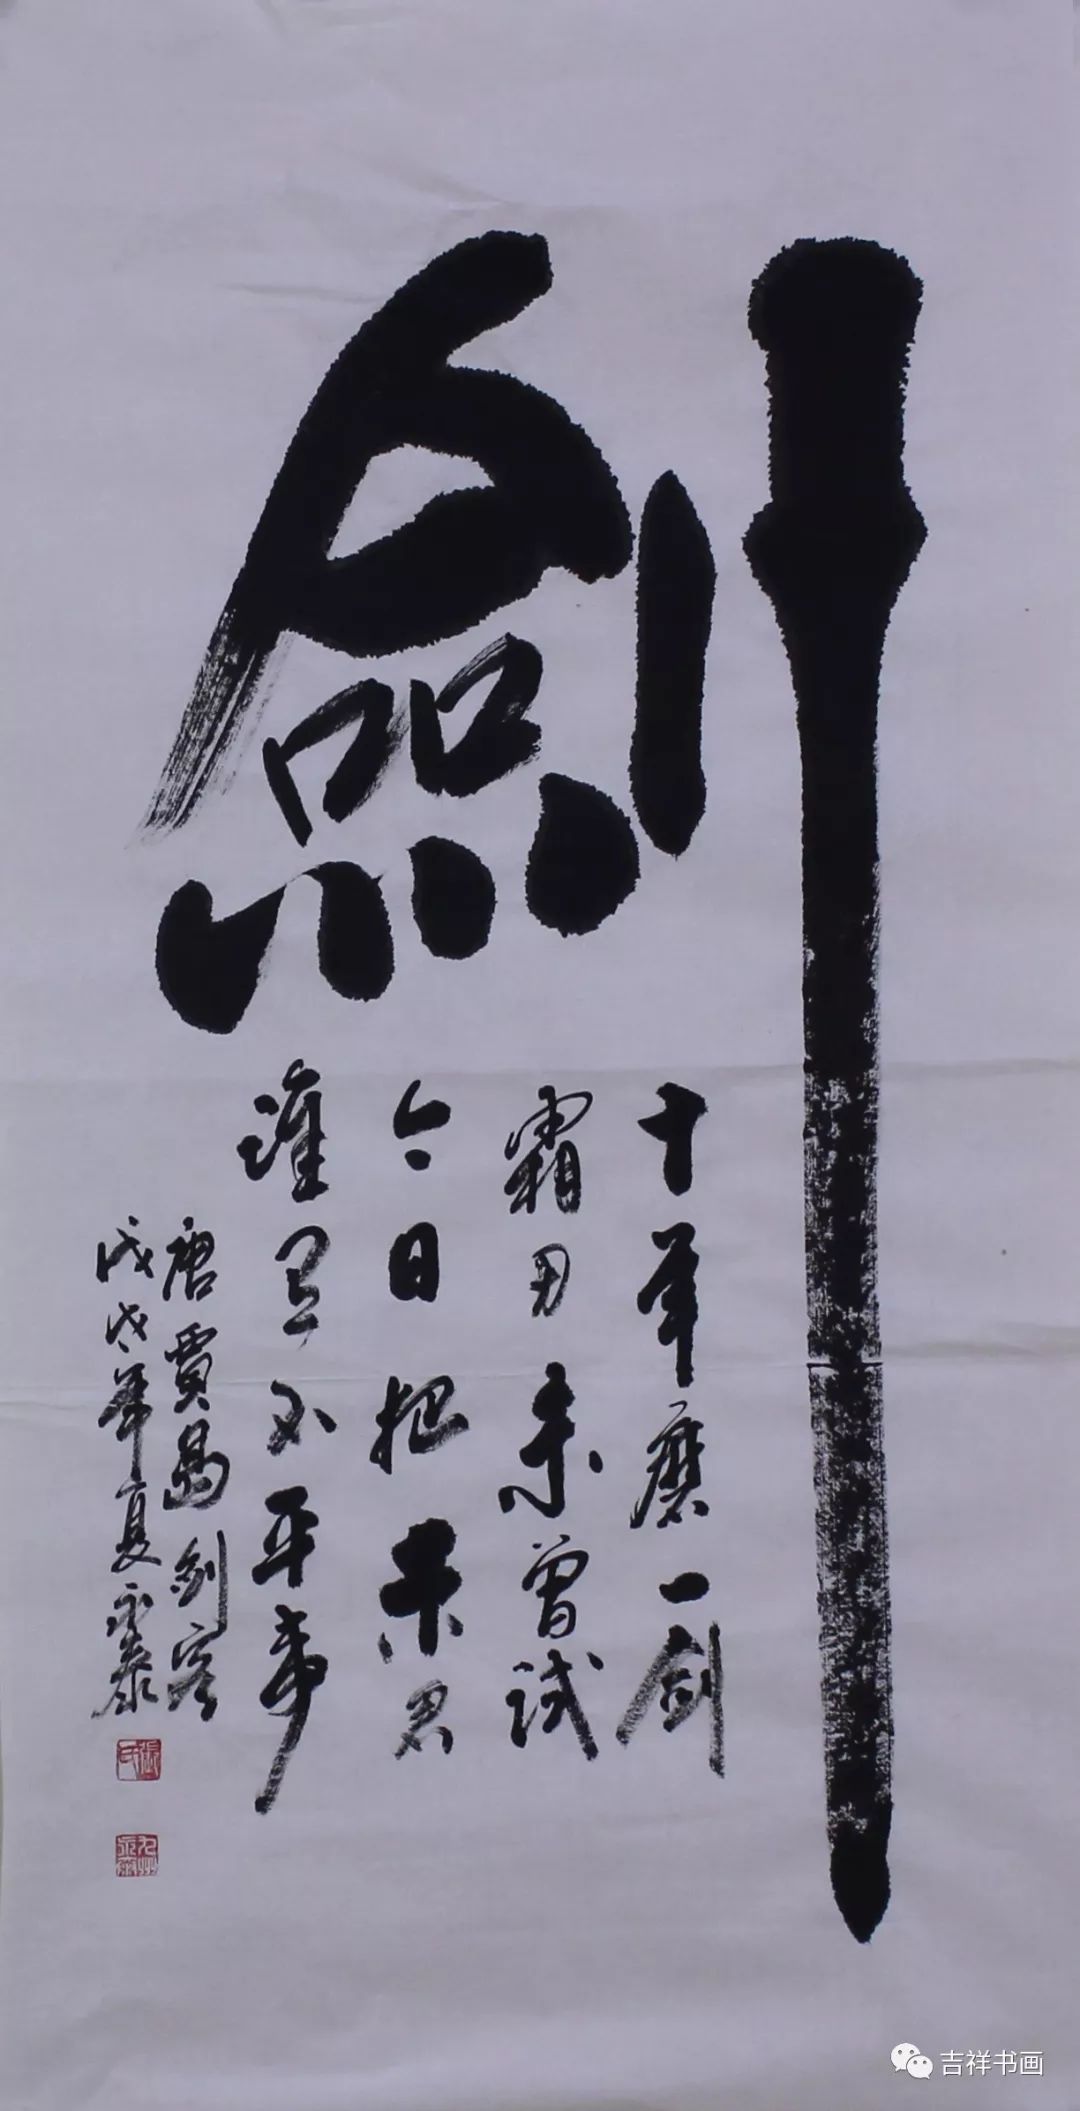 劍
十年磨一劍
霜刃未曾試
今日把示君
誰有不平事
唐賈島劍客
戊戌年夏永泰
張氏
吉祥书画